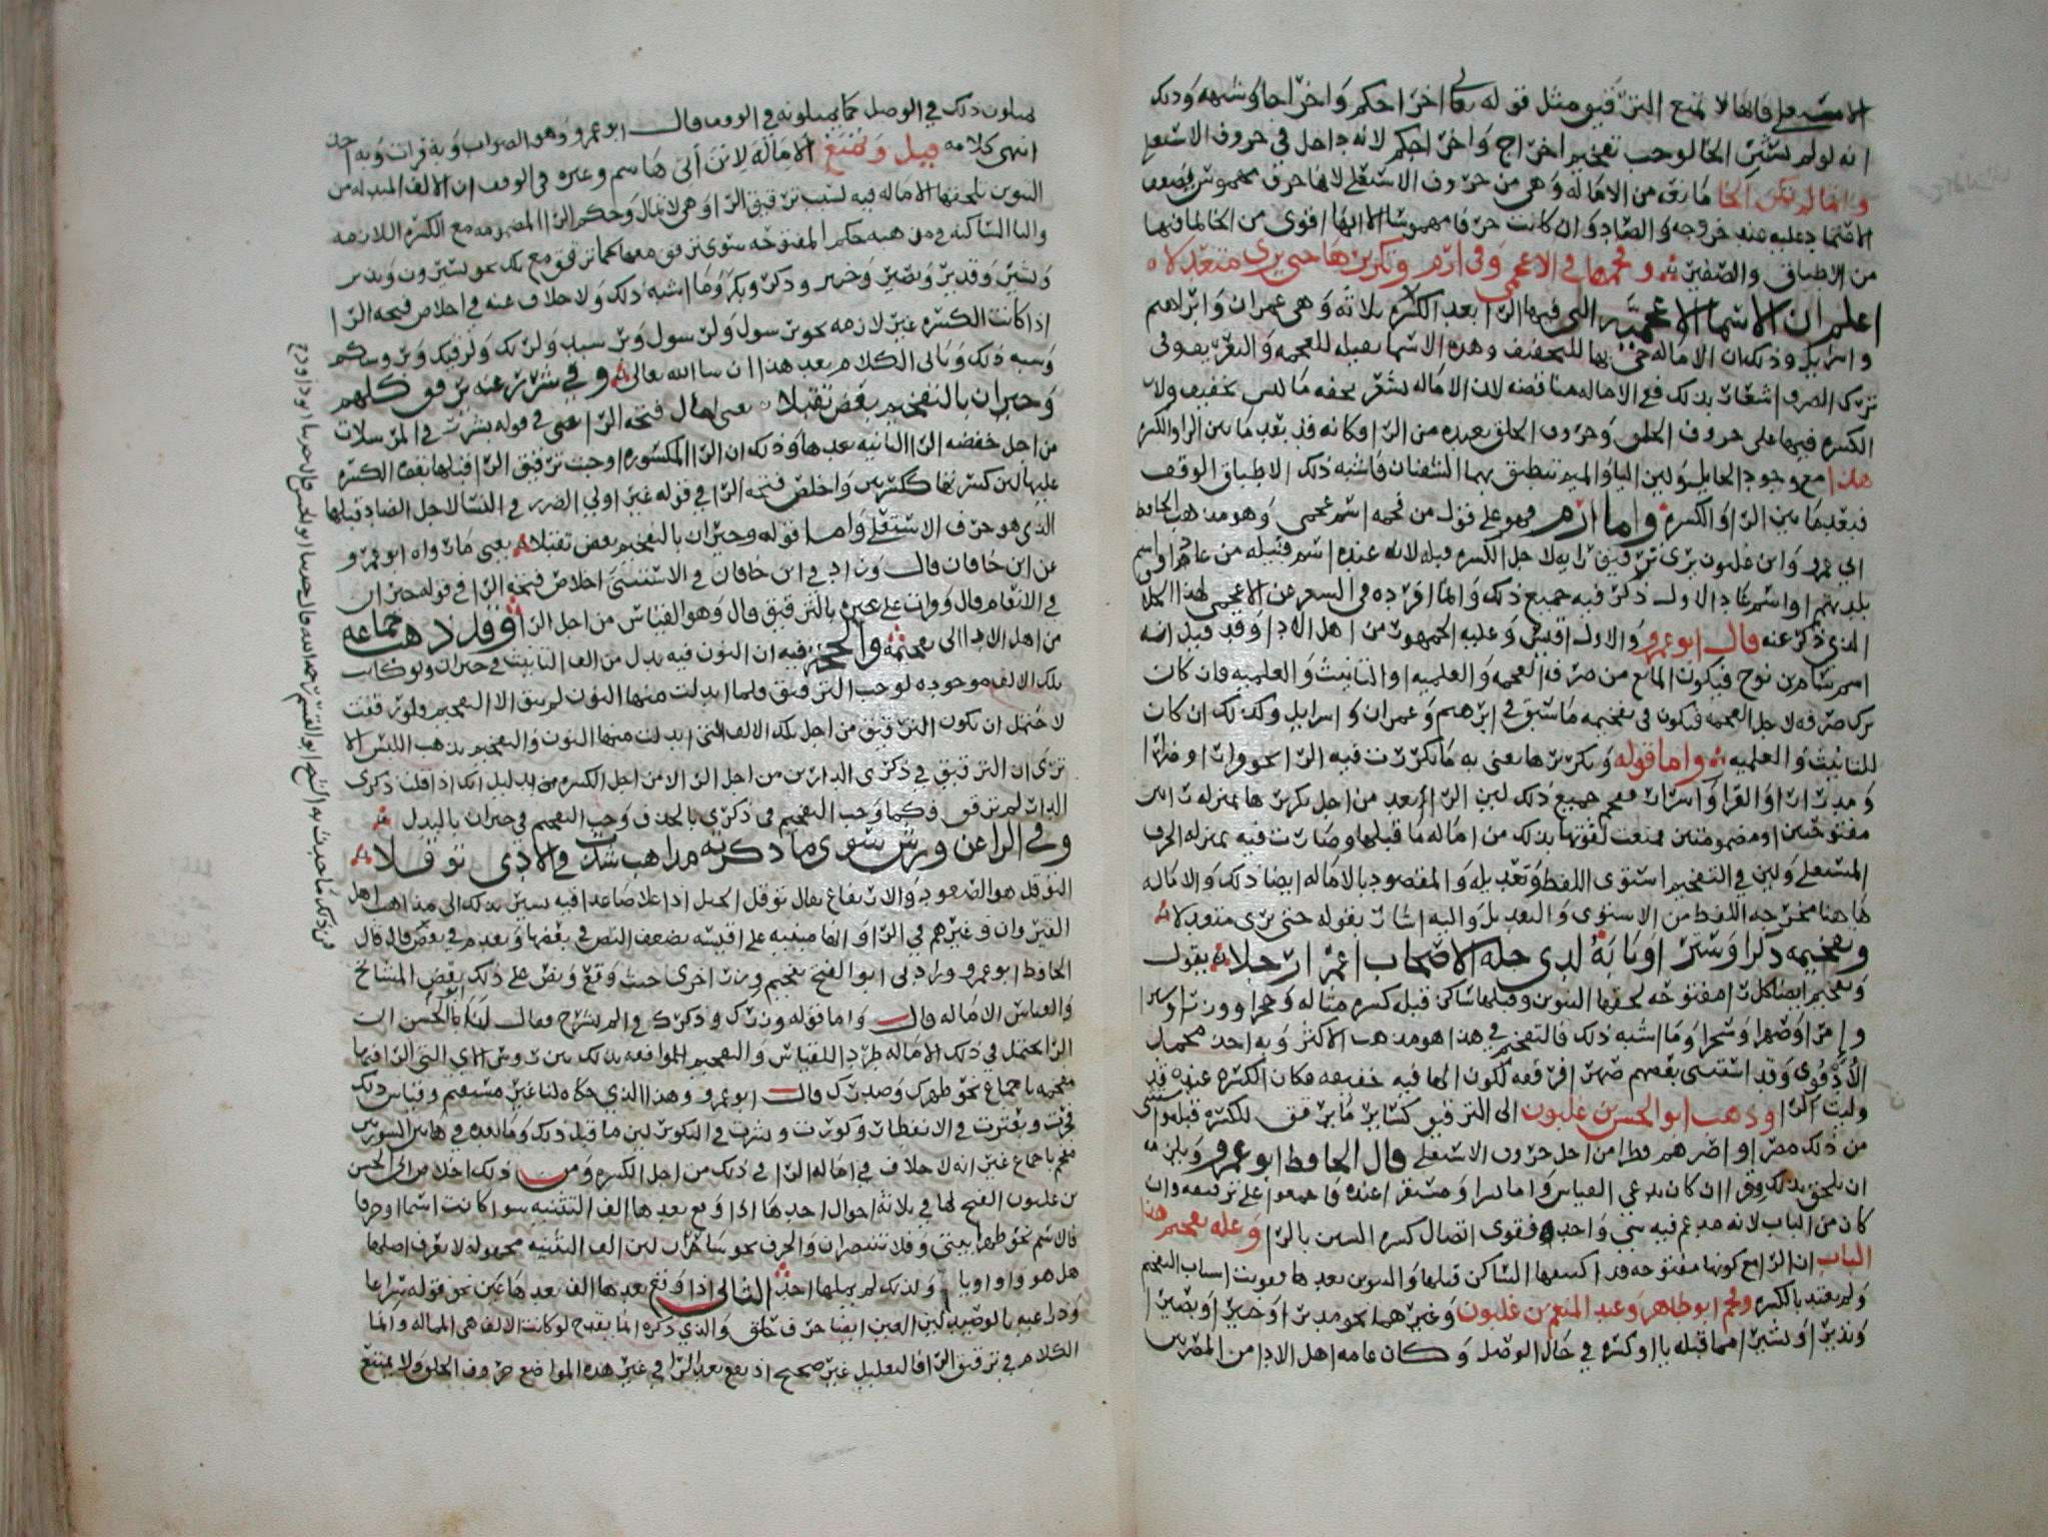 الاستعلا فانها لا تمنع الترقيق مثل قوله تعالى اخراجكم واخراجا وشبهه وذلك
انه لو لم يستثن الخا لوجب تفخيم اخراج واخراجكم لانه داخل في حروف الاستعلا
وانما لم تكن الخا مانعه من الاماله وهي من حروف الاستعلا لانها حرف مهموس يضعف
الاعتماد عليه عند خروجه والصاد وان كانت حرفا مهموسا الا انها اقوى من الخا لما فيها
من الاطباق والصفير وفخمها في الاعجمي وفي ارم وتكريرها حتى يرى متعدلا
اعلم ان الاسما الاعجميه التي فيها الرا بعد الكسره ثلاثه وهي عمران وابراهيم
واسرايل وذلك ان الاماله حي بها للتخفيف وهذه الاسما ثقيله للعجمه والتعريف وفي
ترك الصرف اشعار بذلك فمع الاماله مناقضه لان الاماله تشعر بخفه ما ليس بخفيف ولان
الكسره فيها على حروف الحلق وحروف الحلق بعيده من الرا فكانه قد بعد ما بين الرا والكسره
هذا مع وجود الحايل ولين اليا والميم تنطبق بهما الشفتان فاشبه ذلك الاطباق الوقف
فبعد ما بين الرا والكسره واما ارم فهو على قول من فخمه اسم عجمي وهو مذهب الحافظ
ابي عمرو وابن غلبون يرى ترقيق رايه لاجل الكسره قبله لانه عنده اسم قبيله من عاد او اسم
بلدتهم او اسم عاد الاولى ذكر فيه جميع ذلك وانما افرده في الشعر عن الاعجمي لهذا الخلاف
الذي ذكر عنه قال ابو عمرو والاول اقيس وعليه الجمهور من اهل الادا وقد قيل انه
اسم سام بن نوح فيكون المانع من صرفه العجمه والعلميه او التانيث والعلميه فان كان
ترك صرفه لاجل العجمه فيكون في تفخيمه ما سبق في ابرهيم وعمران واسرايل وكذلك ان كان
للتانيث والعلميه واما قوله وتكريرها يعني به ما تكررت فيه الرا نحو فرارا وضرارا
ومدرارا والفرار واسرارا ففخم جميع ذلك لين الرا بعد من اجل تكريرها بمنزله راين
مفتوحين او مضمومتين فمنعت لقوتها بذلك من اماله ما قبلها وصارت فيه بمنزله الحرف
المستعلي ولين في التفخيم استوى اللفظ وتعديله والمقصود بالاماله ايضا ذلك والاماله
هاهنا مخرجه اللفظ من الاستوى والتعديل واليه اشار بقوله حتى يرى متعدلا
وتفخيمه ذكرا وسترا وبابه لدى جله الاصحاب اعمر ارحلا يقول
وتفخيم ايضا كل را مفتوحه لحقها التنوين وقبلها ساكن قبله كسره مثاله وحجرا ووزرا وسترا
وامرا وصهرا وسحرا وما اشبه ذلك فالتفخيم في هذا هو مذهب الاكثر وبه اخذ محمد
الاذفوي وقد استثنى بعضهم صهرا فرققه لكون الها فيه خفيفه فكان الكسره عنده قد
وليت الرا وذهب ابو الحسن بن غلبون الى الترقيق كساير ما يرقق للكسره قبله واستثنى
من ذلك مصرا واصرهم وقطرا من اجل حروف الاستعلا قال الحافظ ابو عمرو ويلزمه
ان يلحق بذلك وقرا ان كان يدعي القياس واما سرا ومستقرا عنده فاجمعوا على ترقيقه وان
كان من الباب لانه مدغم فيه شي واحد فقوى اتصال كسره السين بالرا وعله تفخيم هذا
الباب ان الرا مع كونها مفتوحه قد اكتنفها الساكن قبلها والتنوين بعدها فقويت اسباب التفخيم
ولم يعتد بالكسره وفخم ابو طاهر وعبد المنعم بن غلبون وغيرهما نحو مديرا وخبيرا وبصيرا
ونذيرا وبشيرا مما قبله يا او كسره في حال الوصل وكان عامه اهل الادا من المصريين
يميلون ذلك في الوصل كما يميلونه في الوقف قال ابو عمرو وهو الصواب وبه قرات وبه اخذ
انتهى كلامه قيل ويمنع الاماله لا تزن ابي هاشم وغيره في الوقف ان الالف المبدله من
التنوين تلحقها الاماله فيه لسبب ترقيق الرا وهي لا تمال وحكم الرا المضمومه مع الكسره اللازمه
واليا الساكنه في مذهبه حكم المفتوحه سوى ترقق معهما كما ترقق مع تلك نحو تسرون ويذر
وبشير وقدير وبصير وخير وذكر وبكر وما اشبه ذلك ولا خلاف عنه في اخلاص فتحه الرا
اذا كانت الكسره غير لازمه نحو برسول ولرسول وبرسيد ولربك ولرقيك وبروسكم
وشبه ذلك وياتي الكلام بعد هذا ان شا الله تعالى وفي شرر عنه يرقق كلهم
وحيران بالتفخيم بعض تقبلا يعني امال فتحه الرا اعني في قوله بشرر في المرسلات
من اجل خفضه الرا الثانيه بعدها وذلك ان الرا المكسوره اوجبت ترقيق الرا قبلها بقوه الكسره
عليها لين كسرتها ككسرتين واخلص فتحه الرا في قوله غير اولي الضرر في النسا لاجل الضاد قبلها
الذي هو حرف الاستعلا واما قوله وحيران بالتفخيم بعض تقبلا يعني ما رواه ابو عمرو
عن ابن خاقان قال وزاد في ابن خاقان في الاستثنى اخلاص فتحه الرا في قوله حيران
في الانعام قال وقرات على غيره بالترقيق قال وهو القياس من اجل الرا وقد ذهب جماعه
من اهل الادا الى تفخيمه والحجه فيه ان النون فيه بدل من الف التانيث في حيران ولو كانت
تلك الالف موجوده لوجب الترقيق فلما ابدلت منها النون لم يبق الا التفخيم ولو رققت
لاحتمل ان يكون الترقيق من اجل تلك الالف التي ابدلت منها النون والتفخيم يذهب اللبس الا
ترى ان الترقيق في ذكرى الدار من اجل الرا لا من اجل الكسره بدليل انك اذا قلت ذكرى
الدار لم ترقق وكما وجب التفخيم في ذكرى بالحذف وجب التفخيم في حيران بالبدل
وفي الرا عن ورش سوى ما ذكرته مذاهب شذت في الادى توقلا
التوقل هو الصعود والارتفاع يقال توقل الجبل اذا علا صاعدا فيه يشير بذلك الى مذاهب اهل
القيروان وغيرهم في الرا وانها مبنيه على اقيسه يضعف النص في بعضها ويعدم في بعض قال
الحافظ ابو عمرو وزاد لي ابو الفتح تفخيم وزر اخرى حيث وقع ونص على ذلك بعض المشايخ
والقياس الاماله قال واما قوله وزرك وذكرك في الم نشرح فقال لنا ابو الحسن ان
الرا تحتمل في ذلك الاماله طردا للقياس والتفخيم للموافقه بذلك بين روس الاي التي الرا فيها
مفخمه باجماع نحو ظهرك وصدرك قال ابو عمرو وهذا الذي حكاه لنا غير مستقيم وقياس ذلك
فجرت وبعثرت في الانفطار وكورت وسيرت في التكوير لين ما قبل ذلك وما بعده في هاتين السورتين
مفخم باجماع غير انه لا خلاف في اماله الرا في ذلك من اجل الكسره ومن ذلك اخلاص ابي الحسن
بن غلبون الفتح لها في ثلاثه احوال احدها اذا وقع بعدها الف التثنيه سوا كانت اسما او حرفا
فالاسم نحو طهرا بيتي وفلا تنتصران والحرف نحو ساحران لين الف التثنيه مجهوله لا يعرف اصلها
هل هو واو او يا ولذلك لم يملها احد الثاني اذا وقع بعدها الف بعدها عين نحو قوله سراعا
وذراعيه بالوصيد لين العين ايضا حرف حلق والذي ذكره انما يقدح لو كانت الالف هي المماله وانما
الكلام في ترقيق الرا فالتعليل غير صحيح اذ يقع بعد الرا في غير هذه المواضع حروف الحلق ولا يمتنع